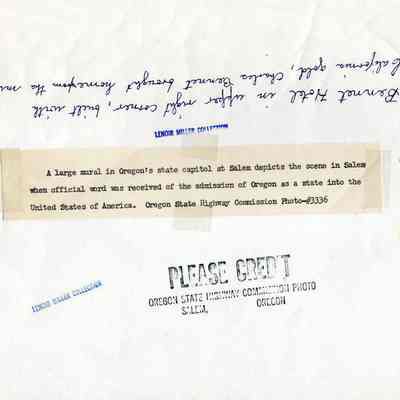 Bennet Hotel in upper right corner, built with
California gold, Charles Bennet brought home from the
LENOIR MILLER COLLECTION
A large mural in Oregon's state capitol at Salem depicts the scene in Salem
when official word was received of the admission of Oregon as a state into the
United States of America. Oregon State Highway Commission Photo-#3336
LENOIR MILLER COLLECTION
PLEASE CREDIT
OREGON STATE HIGHWAY COMMISSION PHOTO
SALEM, OREGON